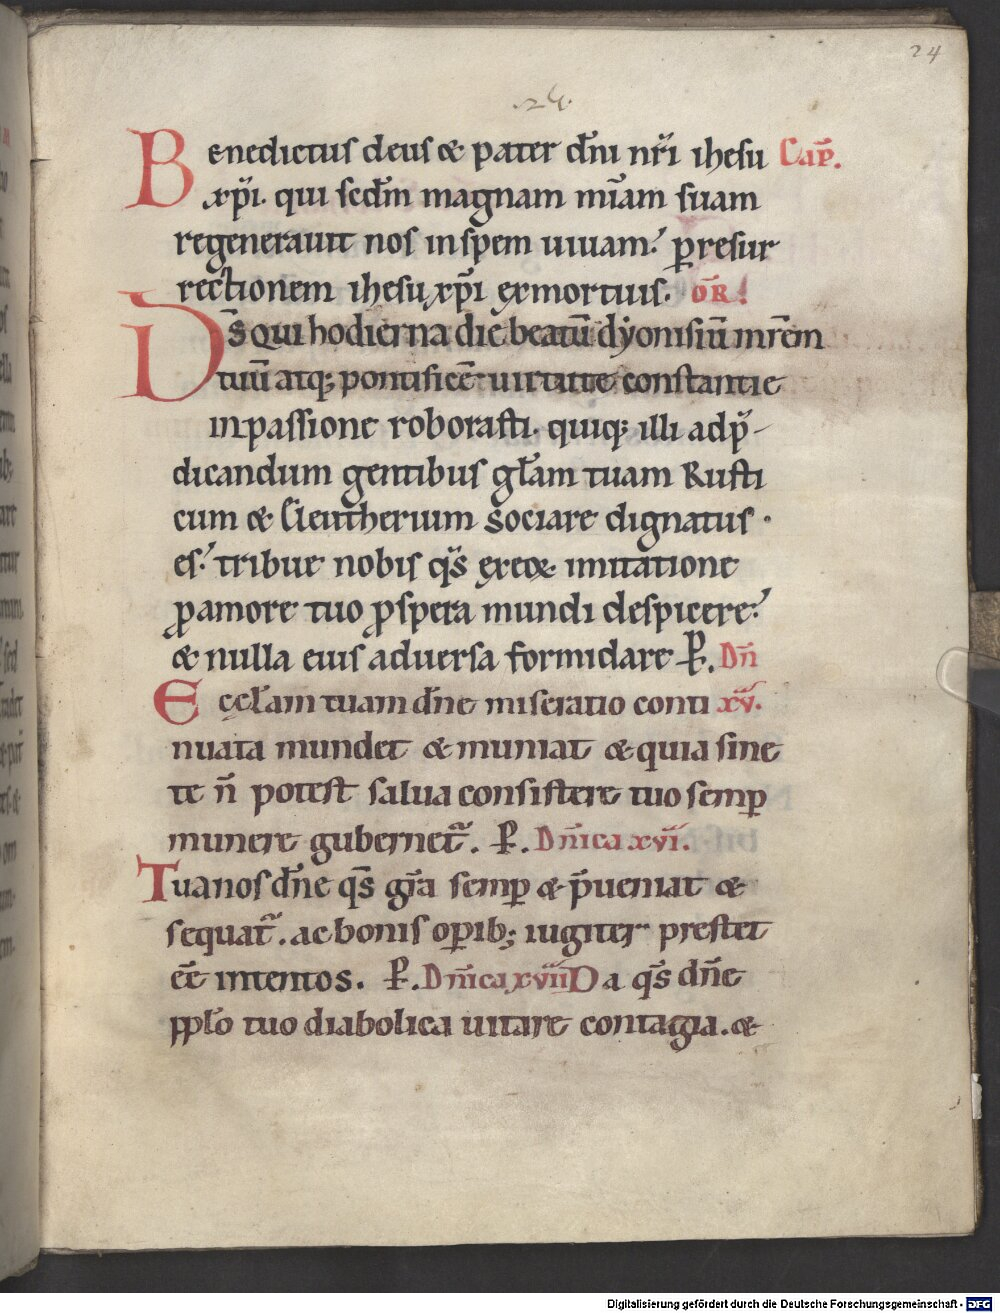 24
.24.
Benedictus deus & pater dn̄i nr̄i ihesu Cap̄.
xp̄i. qui secdm̄ magnam mīam suam
regenerauit nos inspem uiuam. ꝑresur
rectionem ihesu xp̄i exmortuis. OR̄.
Ds̄ qui hodierna die beatū dẏonisiū mr̄em
tuū atq; pontificē uirtute constantie
inpassione roborasti. quiq; illi adp̄
dicandum gentibus gl̄am tuam Rusti
cum & Eleutherium sociare dignatus
es. tribue nobis qs̄ exeoꝝ imitatione
ꝓamore tuo ꝓspera mundi despicere.
& nulla eius aduersa formidare ꝑ. Dn̄
Ecclam̄ tuam dn̄e miseratio conti xv.
nuata mundet & muniat & quia sine
te n̄ potest salua consistere tuo semꝑ
munere gubernet᷑. ꝑ. Dn̄ica xvi.
Tua nos dn̄e qs̄ gr̄a semꝑ & p̄ueniat &
sequat᷑. ac bonis opib; iugiter prestet
eē intentos. ꝑ. Dn̄ica xvii Da qs̄ dn̄e
ppl̄o tuo diabolica uitare contagia. &
Digitalisierung gefördert durch die Deutsche Forschungsgemeinschaft - DFG